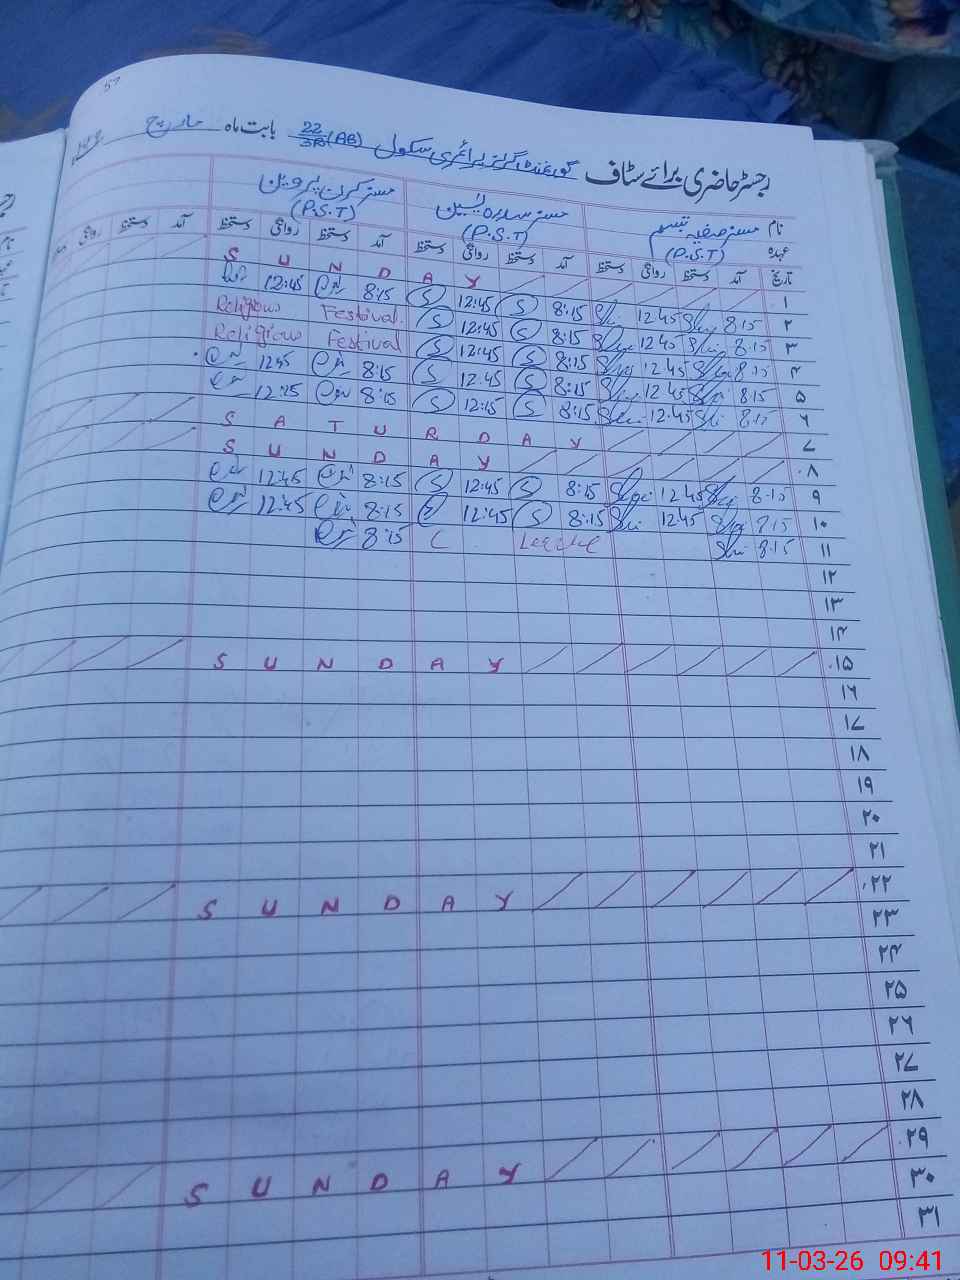 57
رجسٹر حاضری برائے سٹاف گورنمنٹ گرلز پرائمری سکول 22/3R (AB) بابت ماہ مارچ
نام مسز صفیہ تبسم مسز سدرہ یٰسین مسز کرن پروین
عہدہ (P.S.T) (P.S.T) (P.S.T)
تاریخ آمد دستخط روانگی دستخط آمد دستخط روانگی دستخط آمد دستخط روانگی دستخط آمد دستخط روانگی
۱ S U N D A Y
۲ 8:15 12:45 8:15 S 12:45 S 8:15 12:45
۳ 8:15 12:45 8:15 S 12:45 S Religious Festival
۴ 8:15 12:45 8:15 S 12:45 S Religious Festival
۵ 8:15 12:45 8:15 S 12:45 S 8:15 12:45
۶ 8:15 12:45 8:15 S 12:15 S 8:15 12:15
۷ S A T U R D A Y
۸ S U N D A Y
۹ 8:15 12:45 8:15 S 12:45 S 8:15 12:45
۱۰ 8:15 12:45 8:15 S 12:45 S 8:15 12:45
۱۱ 8:15 8:15
۱۲
۱۳
۱۴
۱۵ S U N D A Y
۱۶
۱۷
۱۸
۱۹
۲۰
۲۱
۲۲ S U N D A Y
۲۳
۲۴
۲۵
۲۶
۲۷
۲۸
۲۹ S U N D A Y
۳۰
۳۱
11-03-26 09:41